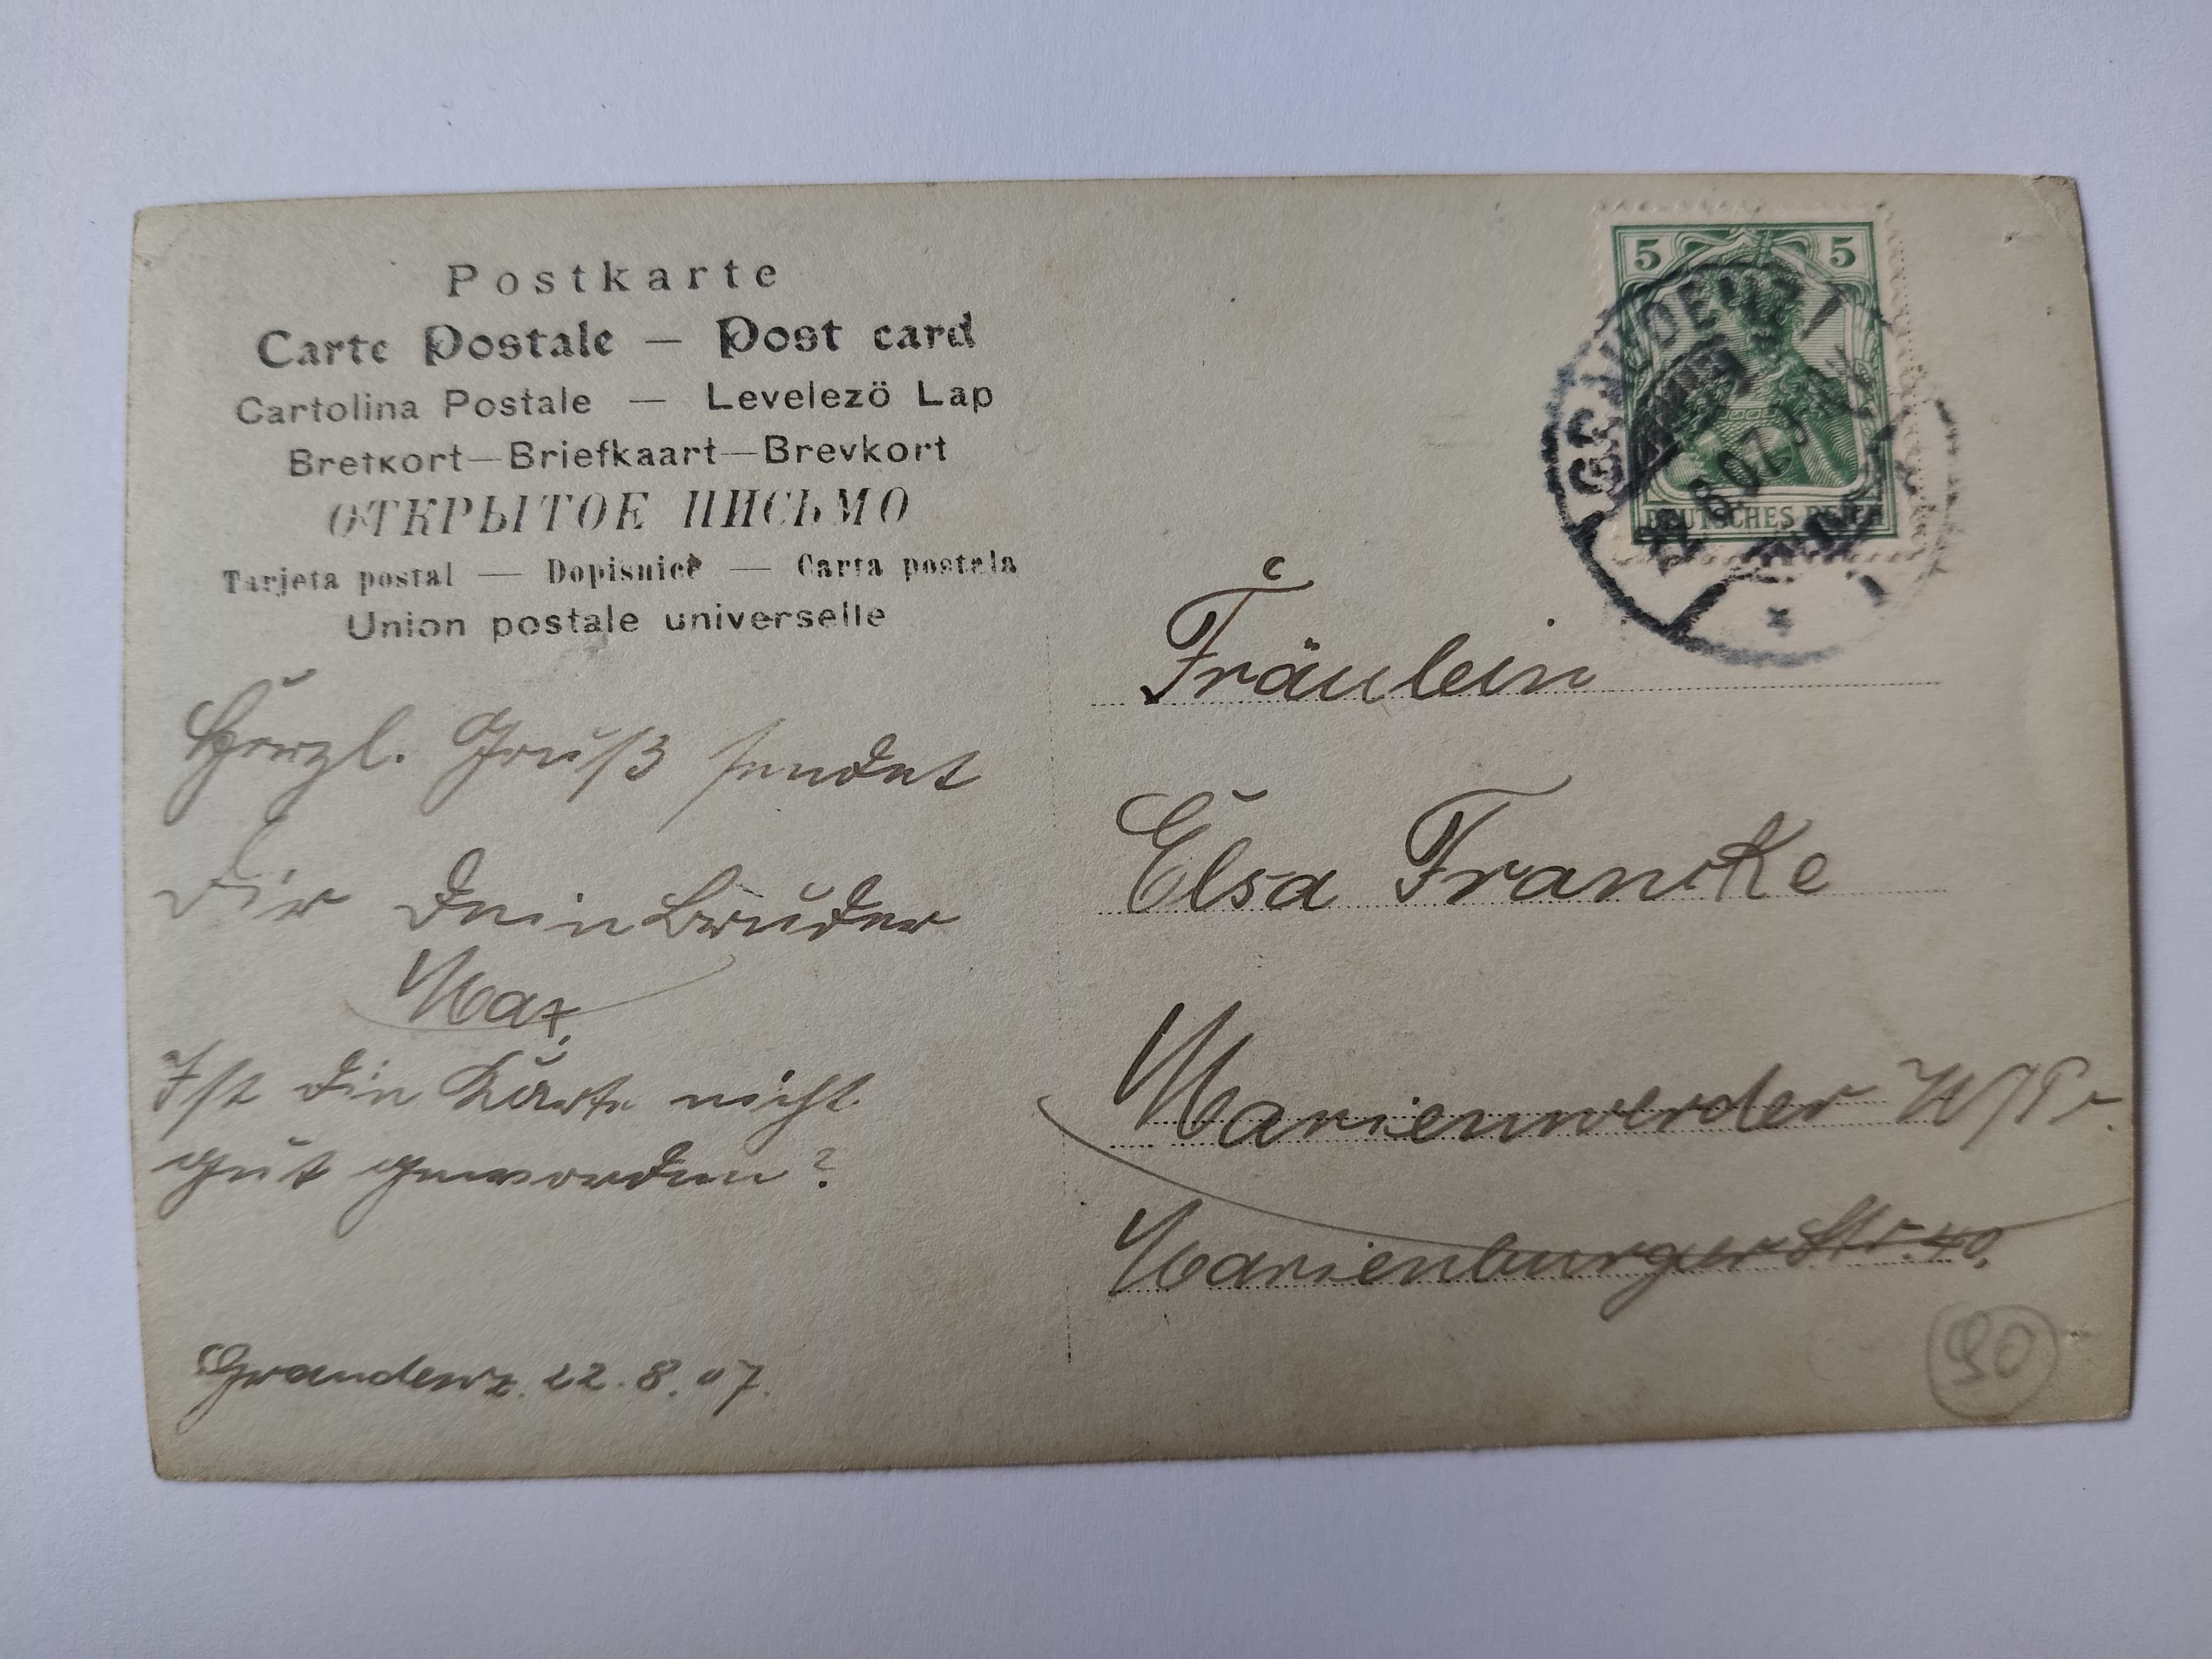 Postkarte
Carte Postale — Post card
Cartolina Postale — Levelezö Lap
Brefkort—Briefkaart—Brevkort
ОТКРЫТОЕ ПИСЬМО
Tarjeta postal — Dopisnice — Carta postala
Union postale universelle
Herzl. Gruß sendet
Dir Dein Bruder
Max.
Ist die Karte nicht
gut geworden?
Graudenz. 22.8.07.
5 5
DEUTSCHES REICH
GRAUDENZ
22 8 07
Fräulein
Elsa Francke
Marienwerder W/Pr.
Marienburger Str. 40.
90